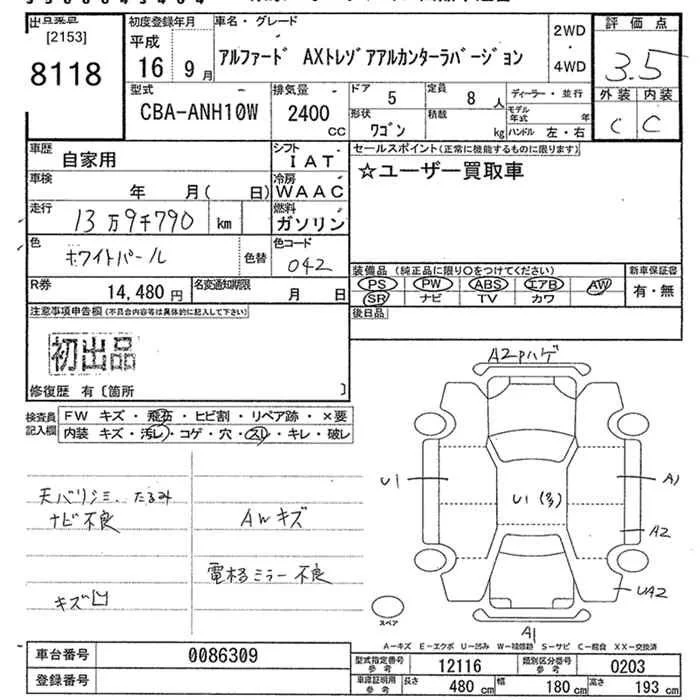 [2153]
8118
初度登録年月
平成
16 9月
車名・グレード
アルファード AXトレゾアアルカンターラバージョン
2WD
・
4WD
評価点
3.5
外装 内装
C C
型式
CBA-ANH10W
排気量
2400
CC
ドア
5
定員
8人
形状
ワゴン
積載
kg
ディーラー・並行
モデル年式 年
ハンドル 左・右
車歴
自家用
シフト
IAT
車検
年 月( 日)
冷房
WAAC
走行
13万9千790 km
燃料
ガソリン
色
ホワイトパール
色替
色コード
042
R券
14,480円
名変通知期限
月 日
セールスポイント(正常に機能するものに限ります)
☆ユーザー買取車
装備品 (純正品に限り○をつけてください)
PS PW ABS エアB AW
SR ナビ TV カワ
新車保証書
有・無
後日品
注意事項申告欄(不具合内容等は具体的に記入して下さい)
初出品
修復歴 有〔箇所 〕
検査員記入欄
FW キズ・飛石・ヒビ割・リペア跡・×要
内装 キズ・汚レ・コゲ・穴・スレ・キレ・破レ
天バリシミ、たるみ
ナビ不良
キズ凹
AWキズ
電格ミラー不良
A2Pハゲ
U1
U1(多)
A1
A2
UA2
A1
スペア
A-キズ E-エクボ U-凹み W-補修跡 S-サビ C-腐食 XX-交換済
車台番号
0086309
登録番号
型式指定番号
参考
12116
類別区分番号
参考
0203
車庫証明用
参考
長さ 480cm
幅 180cm
高さ 193cm